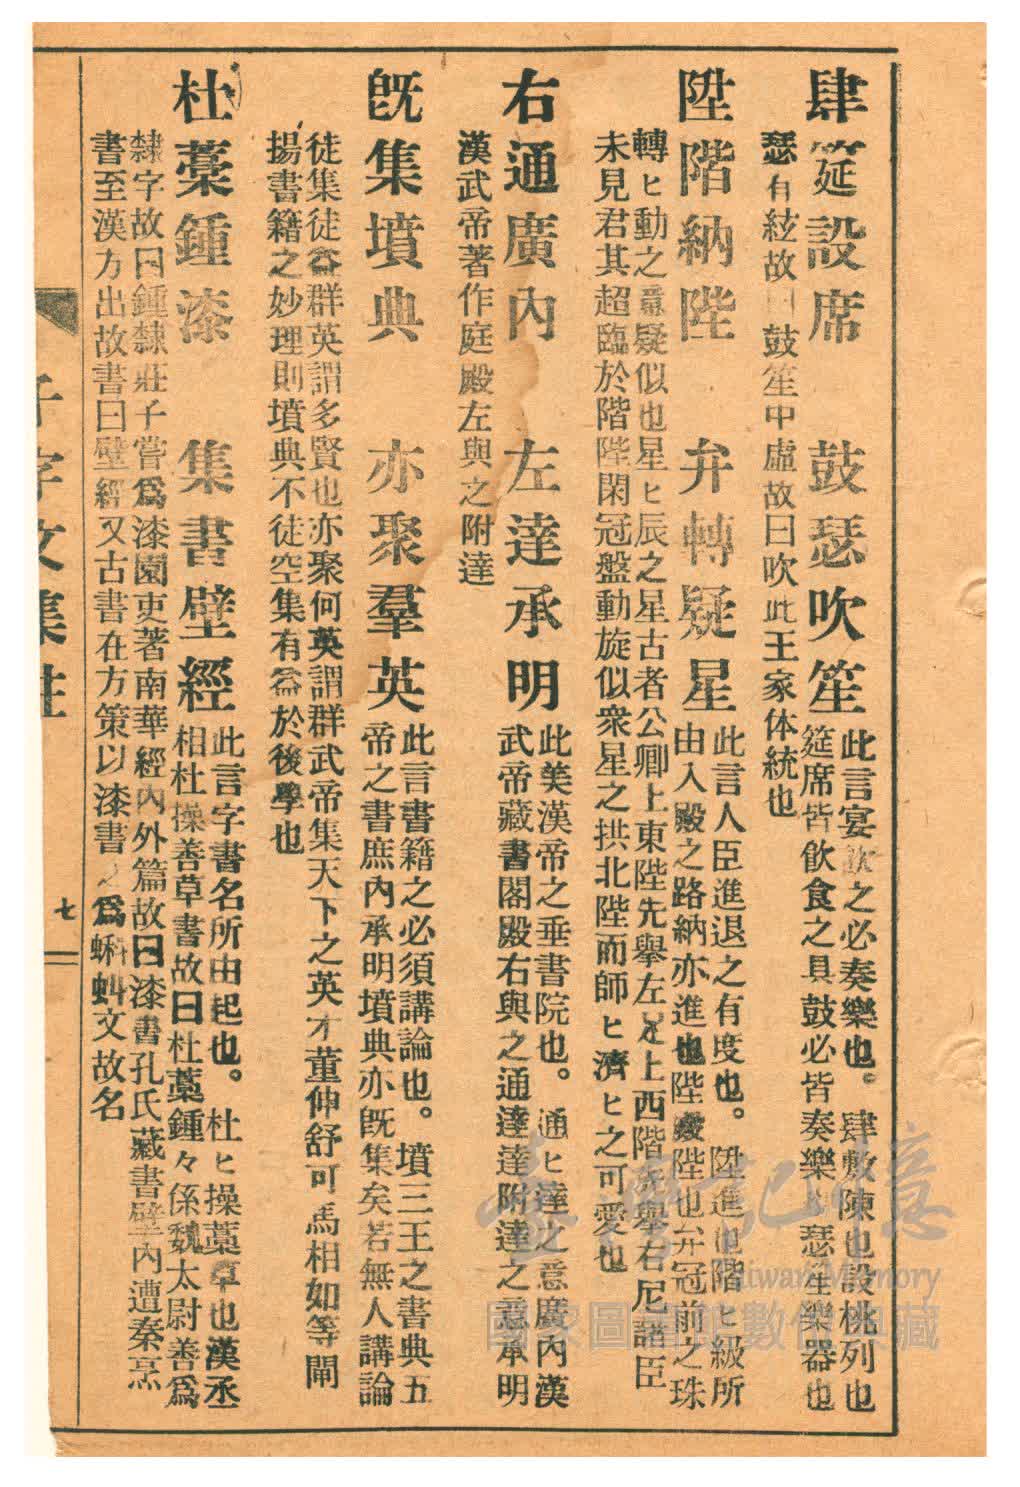 肆筵設席　鼓瑟吹笙
此言宴飲之必奏樂也。肆敷陳也設桃列也
筵席皆飲食之具鼓必皆奏樂 瑟笙樂器也
瑟有絃故曰鼓笙中虛故曰吹此王家体統也
陞階納陛　弁轉疑星
此言人臣進退之有度也。陞進也階ヒ級所
由入殿之路納亦進也陛 陛也弁冠前之珠
轉ヒ動之意疑似也星ヒ辰之星古者公卿上東陛先舉左 上西階先舉右尼諸臣
未見君其超臨於階陛閑冠盤動旋似衆星之拱北陛而師ヒ濟ヒ之可愛也
右通廣內　左達承明
此美漢帝之垂書院也。通ヒ達之意廣內漢
武帝藏書閣殿右與之通達達附達之意承明
漢武帝著作庭殿左與之附達
既集墳典　亦聚羣英
此言書籍之必須講論也。墳三王之書典五
帝之書庶內承明墳典亦既集矣若無人講論
徒集徒益群英謂多賢也亦聚何英謂群武帝集天下之英才董仲舒可馬相如等闡
揚書籍之妙理則墳典不徒空集有益於後學也
杜藁鍾漆　集書壁經
此言字書名所由起也。杜ヒ操藁草也漢丞
相杜操善草書故曰杜藁鍾々係魏太尉善爲
隸字故曰鍾隸莊子嘗爲漆園吏著南華經內外篇故曰漆書孔氏藏書壁內遭秦烹
書至漢方出故書曰壁經又古書在方策以漆書之爲蝌蚪文故名
千字文集註
七
臺灣記憶
Taiwan Memory
國家圖書館數位典藏